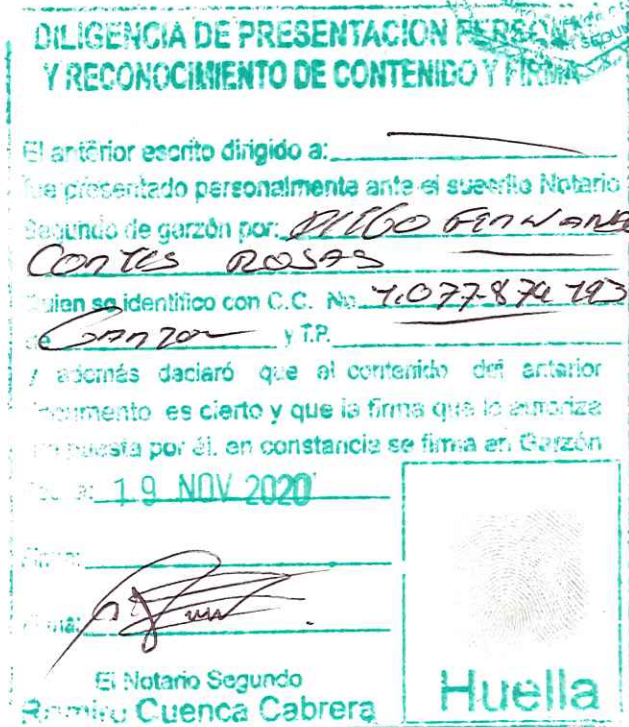 DILIGENCIA DE PRESENTACION PERSONAL
Y RECONOCIMIENTO DE CONTENIDO Y FIRMA
El anterior escrito dirigido a:
fue presentado personalmente ante el suscrito Notario
Segundo de garzón por: DIEGO FERNANDO
CORTES ROSAS
Quien se identifico con C.C. No. 1.077.874.193
de Garzon y T.P.
y además declaró que el contenido del anterior
documento es cierto y que la firma que lo autoriza
puesta por él. en constancia se firma en Garzón
19 NOV 2020
Firma:
El Notario Segundo
Ramiro Cuenca Cabrera
Huella